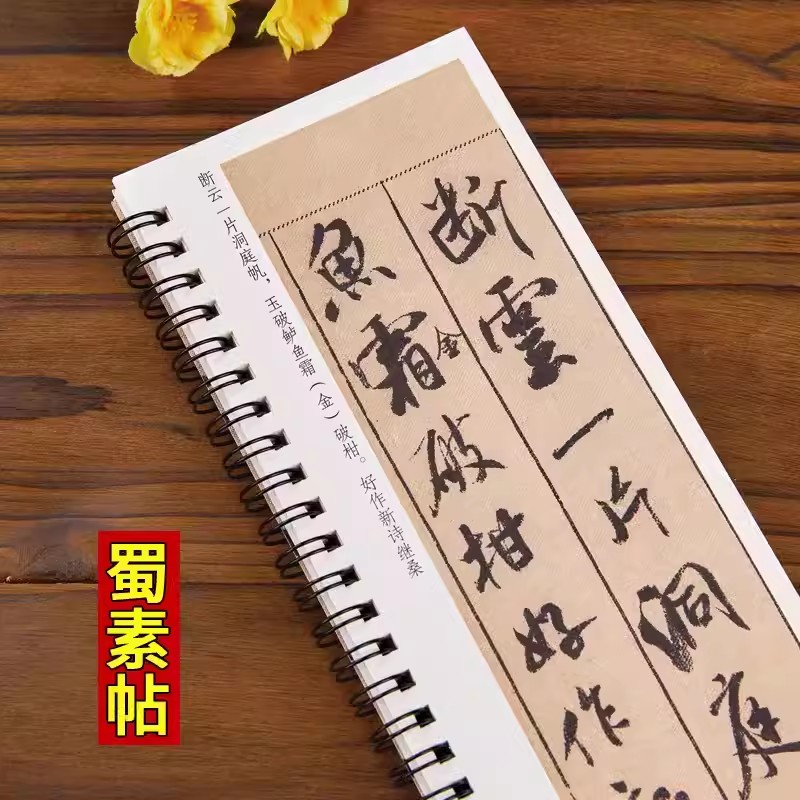 断雲一片洞庭
魚霜金破柑好作
断云一片洞庭帆，玉破鲈鱼霜（金）破柑。好作新诗继桑
蜀素帖